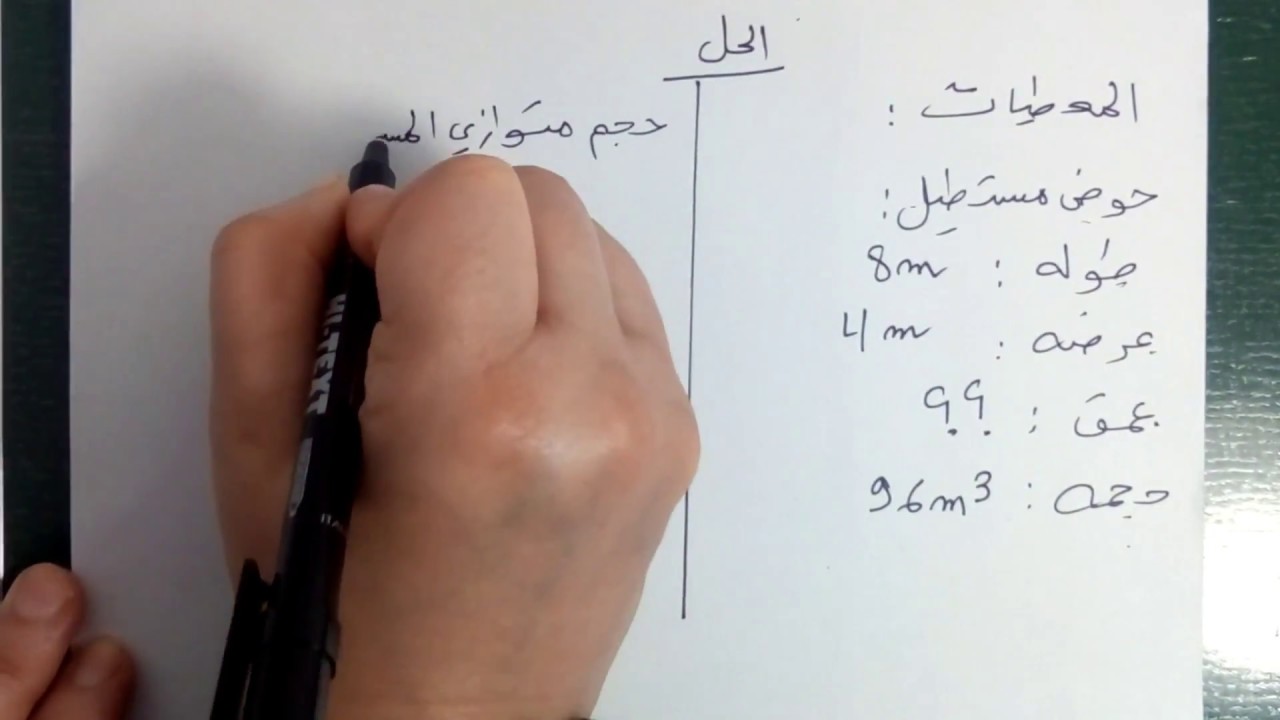 الحل
المعطيات :
حوض مستطيل :
طوله : 8m
عرضه : 4m
عمق : ؟؟
حجمه : 96m³
حجم متوازي المس
HI-TEXT